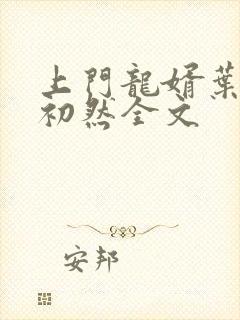 上門龍婿葉
初然全文
安邦